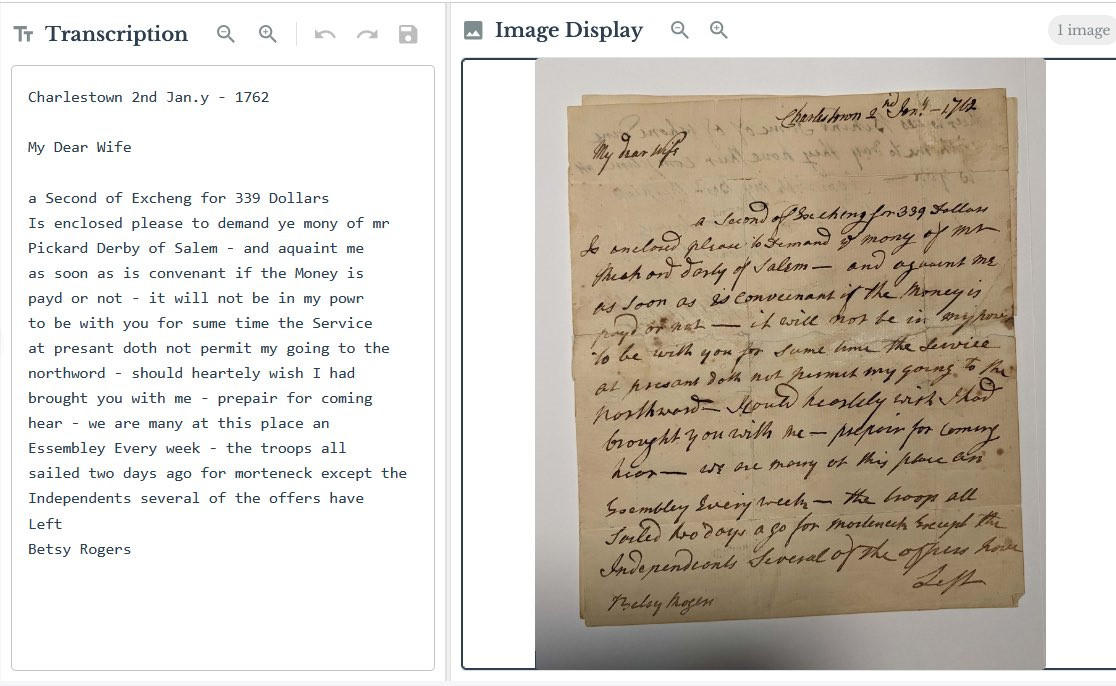 Transcription
Charlestown 2nd Jan.y - 1762
My Dear Wife
a Second of Excheng for 339 Dollars
Is enclosed please to demand ye mony of mr
Pickard Derby of Salem - and aquaint me
as soon as is convenant if the Money is
payd or not - it will not be in my powr
to be with you for sume time the Service
at presant doth not permit my going to the
northword - should heartely wish I had
brought you with me - prepair for coming
hear - we are many at this place an
Essembley Every week - the troops all
sailed two days ago for morteneck except the
Independents several of the offers have
Left
Betsy Rogers
Image Display
1 image
Charlestown 2nd Jan.y - 1762
My dear wife
a Second of Excheng for 339 Dollars
Is enclosed please to Demand ye mony of mr
of Salem — and aquaint me
as Soon as is convenant if the Money is
payd or not — it will not be in my powr
to be with you for Sume time the Service
at presant doth not permit my going to the
northward — Should heartely wish I had
brought you with me — prepair for Coming
hear — we are many at this place an
Essembley Every week — the troops all
Sailed two days ago for morteneck Except the
Independents Several of the offers have
Left
Betsy Rogers